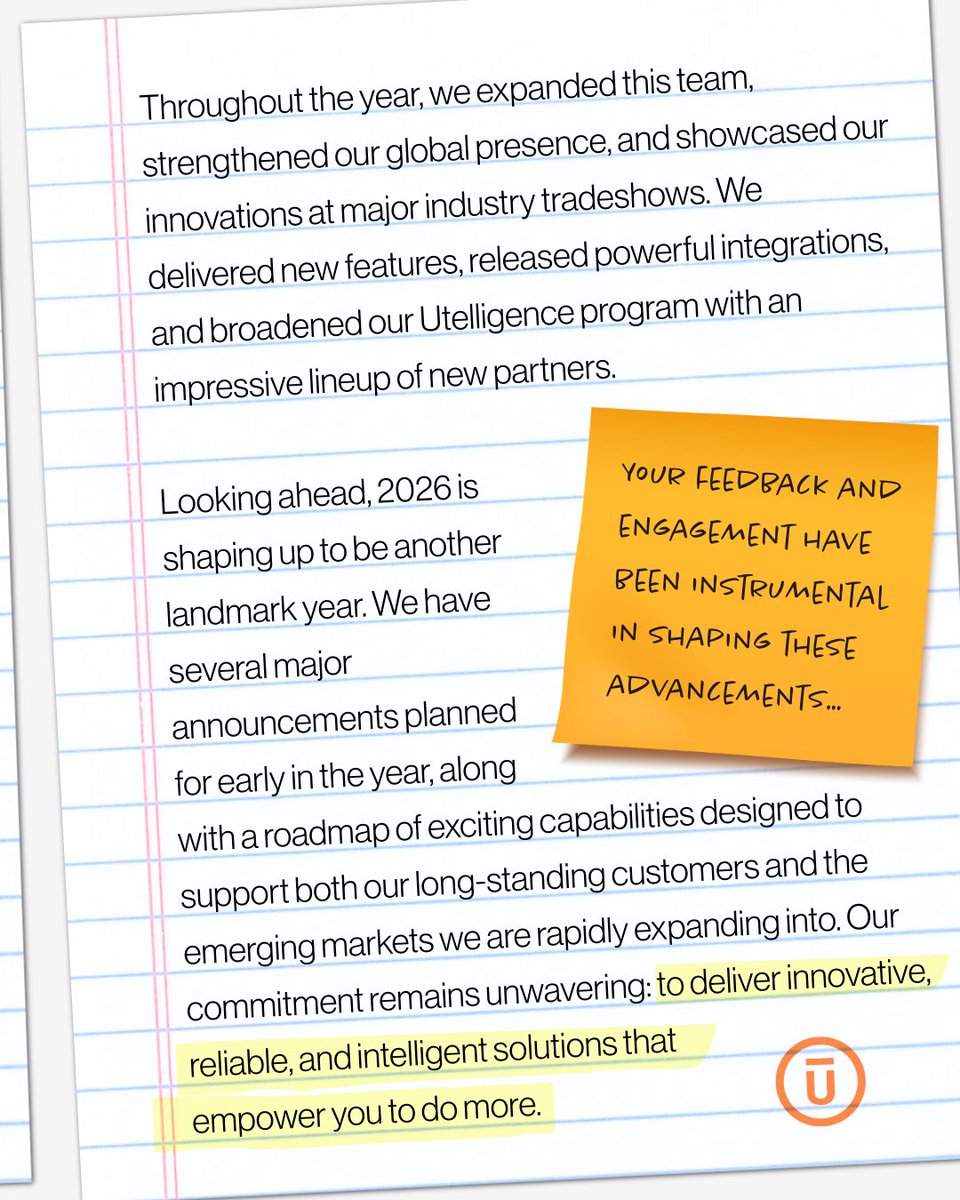 Throughout the year, we expanded this team,
strengthened our global presence, and showcased our
innovations at major industry tradeshows. We
delivered new features, released powerful integrations,
and broadened our Utelligence program with an
impressive lineup of new partners.
Looking ahead, 2026 is
shaping up to be another
landmark year. We have
several major
announcements planned
for early in the year, along
with a roadmap of exciting capabilities designed to
support both our long-standing customers and the
emerging markets we are rapidly expanding into. Our
commitment remains unwavering: to deliver innovative,
reliable, and intelligent solutions that
empower you to do more.
YOUR FEEDBACK AND
ENGAGEMENT HAVE
BEEN INSTRUMENTAL
IN SHAPING THESE
ADVANCEMENTS...
Ū